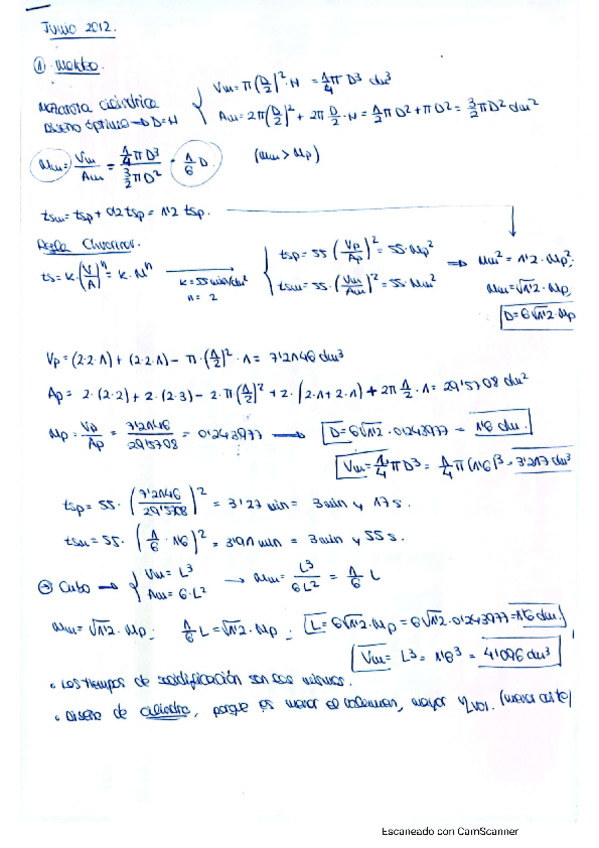 Junio 2012.
① Moldeo.
Mazarota cilíndrica
Diseño óptimo → D=H
Vm = π(D/2)²·H = 1/4 π D³ dm³
Am = 2π(D/2)² + 2π D/2·H = 1/2 π D² + π D² = 3/2 π D² dm²
Mm = Vm/Am = (1/4 π D³)/(3/2 π D²) = 1/6 D. (Mm > Mp)
tsm = tsp + 0'2 tsp = 1'2 tsp.
Regla Chvorinov.
ts = k·(V/A)ⁿ = k·Mⁿ
k = 55 min/dm²
n = 2
tsp = 55 (Vp/Ap)² = 55·Mp²
tsm = 55·(Vm/Am)² = 55 Mm²
⇒ Mm² = 1'2·Mp²;
Mm = √1'2·Mp
D = 6√1'2·Mp
Vp = (2·2·1) + (2·2·1) − π·(1/2)²·1 = 7'2146 dm³
Ap = 2·(2·2) + 2·(2·3) − 2·π(1/2)² + 2·(2·1+2·1) + 2π 1/2·1 = 29'5708 dm²
Mp = Vp/Ap = 7'2146/29'5708 = 0'243977 → D = 6√1'2·0'243977 = 1'6 dm.
Vm = 1/4·π D³ = 1/4 π (1'6)³ = 3'217 dm³
tsp = 55·(7'2146/29'5708)² = 3'27 min = 3 min y 17 s.
tsm = 55·(1/6·1'6)² = 3'91 min = 3 min y 55 s.
→ Cubo → Vm = L³
Am = 6·L²
→ Mm = L³/6L² = 1/6 L
Mm = √1'2·Mp; 1/6 L = √1'2·Mp; L = 6√1'2·Mp = 6√1'2·0'243977 = 1'6 dm
Vm = L³ = 1'6³ = 4'096 dm³
• Los tiempos de solidificación son los mismos.
• Diseño de cilindro, porque es menor el volumen, mayor ηvol. (menor coste)
Escaneado con CamScanner